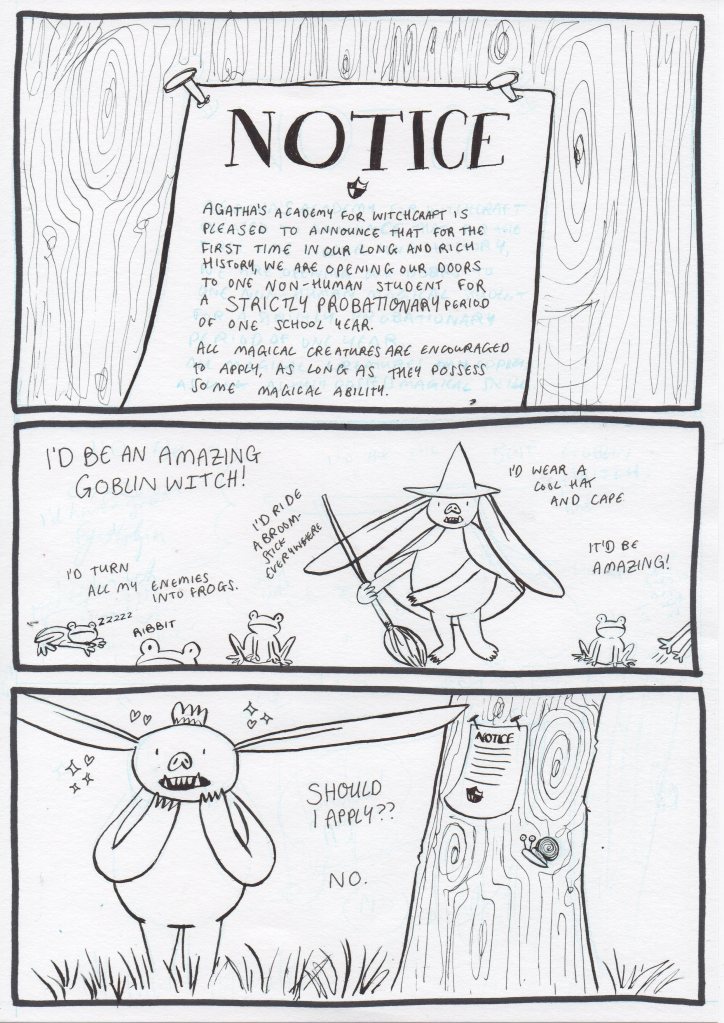 NOTICE
AGATHA'S ACADEMY FOR WITCHCRAFT IS
PLEASED TO ANNOUNCE THAT FOR THE
FIRST TIME IN OUR LONG AND RICH
HISTORY, WE ARE OPENING OUR DOORS
TO ONE NON-HUMAN STUDENT FOR
A STRICTLY PROBATIONARY PERIOD
OF ONE SCHOOL YEAR.
ALL MAGICAL CREATURES ARE ENCOURAGED
TO APPLY, AS LONG AS THEY POSSESS
SOME MAGICAL ABILITY.
I'D BE AN AMAZING
GOBLIN WITCH!
I'D TURN
ALL MY ENEMIES
INTO FROGS.
ZZZZZ
RIBBIT
I'D RIDE
A BROOM-
STICK
EVERYWHERE
I'D WEAR A
COOL HAT
AND CAPE
IT'D BE
AMAZING!
SHOULD
I APPLY??
NO.
NOTICE